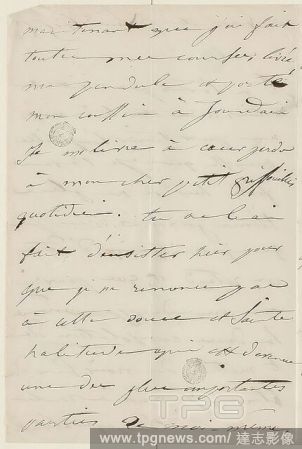 maintenant que j'ai fait
toutes mes courses, livré
ma pendule et porté
mon coussin à Jourdain
Je me livre à cœur perdu
à mon cher petit
quotidien. tu as
fait d'insister hier pour
que je ne renonce pas
à cette douce et Sainte
habitude qui est devenue
une des plus importantes
parties de moi même
TPG
www.tpgnews.com/達志影像